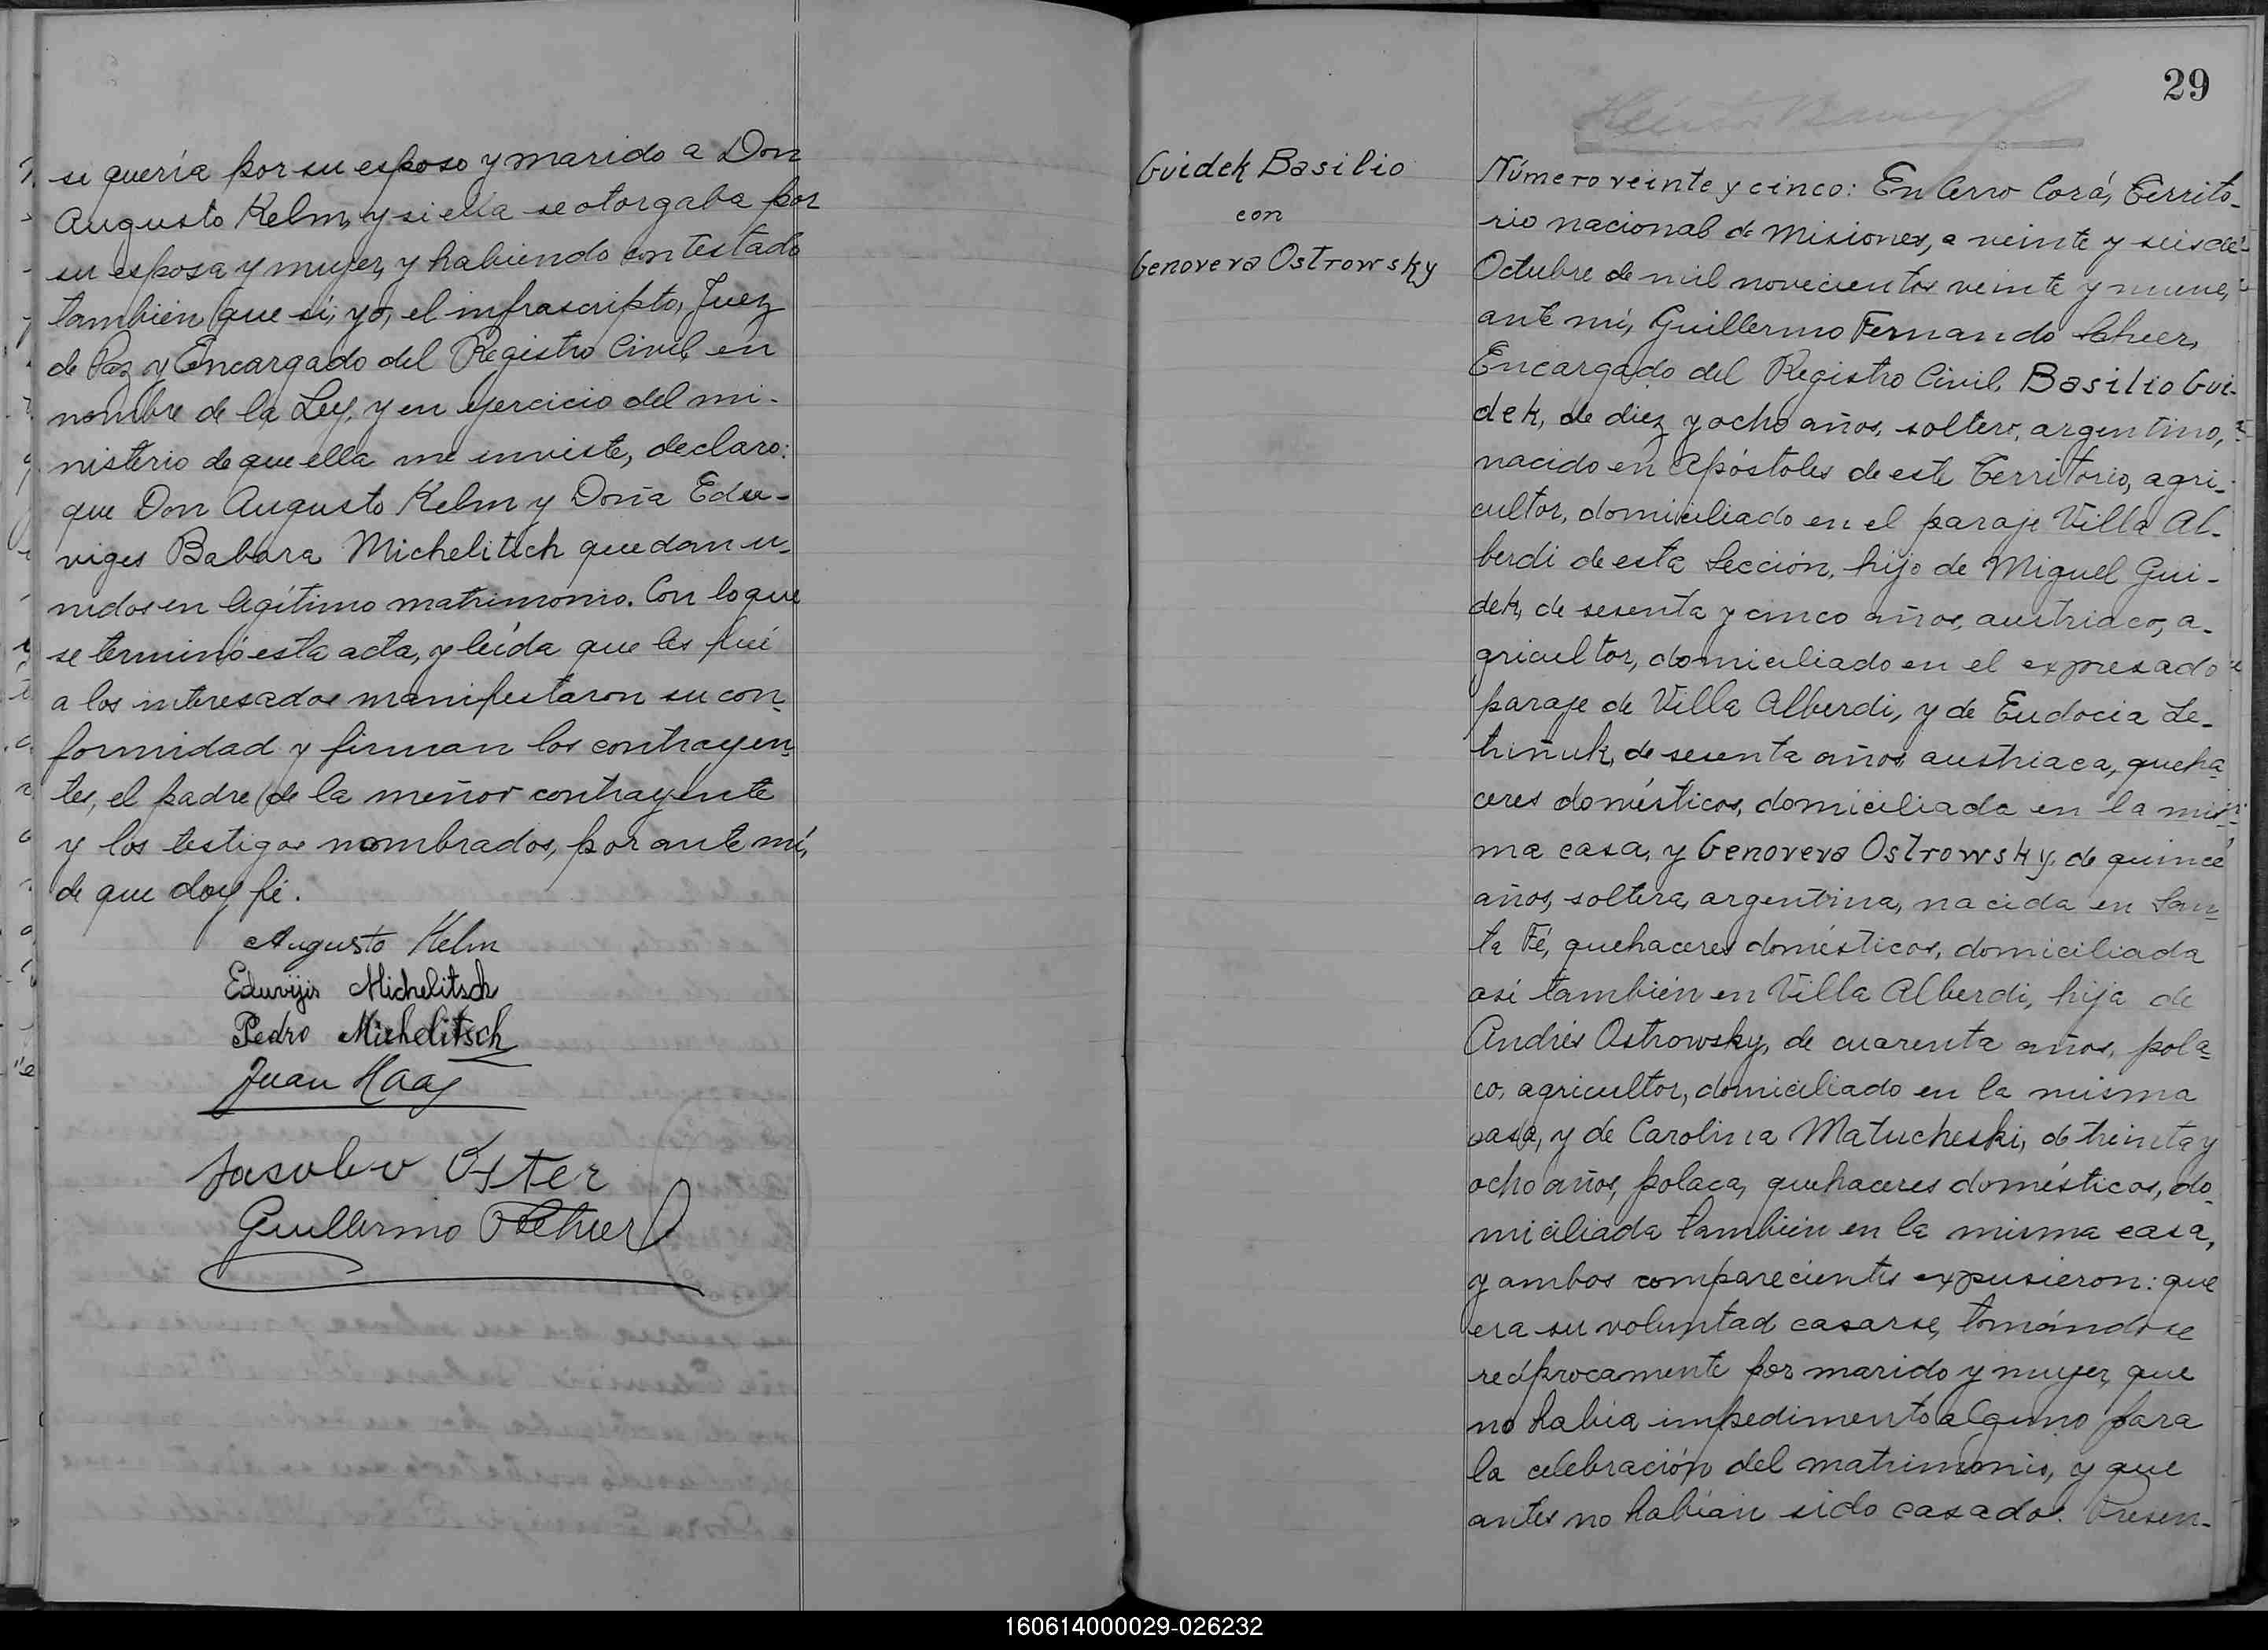 se quería por su esposo y marido a Don
Augusto Kelm, y si ella se otorgaba por
su esposa y mujer, y habiendo contestado
también que sí, yo, el infrascripto, Juez
de Paz y Encargado del Registro Civil, en
nombre de la Ley, y en ejercicio del mi-
nisterio de que ella me inviste, declaro:
que Don Augusto Kelm y Doña Edu-
viges Babara Michelitsch quedan u-
nidos en legítimo matrimonio. Con lo que
se terminó esta acta, y leída que les fué
a los interesados manifestaron su con-
formidad y firman los contrayen-
tes, el padre de la menor contrayente
y los testigos nombrados, por ante mí,
de que doy fé.
Augusto Kelm
Eduvijis Michelitsch
Pedro Michelitsch
Juan Haas
Oster
Guillermo Scheer
29
Guidek Basilio
con
Genoveva Ostrowsky
Número veinte y cinco: En Cerro Corá, Territo-
rio nacional de Misiones, a veinte y seis de
Octubre de mil novecientos veinte y nueve,
ante mí, Guillermo Fernando Scheer,
Encargado del Registro Civil, Basilio Gui-
dek, de diez y ocho años, soltero, argentino,
nacido en Apóstoles de este Territorio, agri-
cultor, domiciliado en el paraje Villa Al-
berdi de esta Sección, hijo de Miguel Gui-
dek, de sesenta y cinco años, austriaco, a-
gricultor, domiciliado en el expresado
paraje de Villa Alberdi, y de Eudocia Le-
triñuk, de sesenta años, austriaca, queha-
ceres domésticos, domiciliada en la mis-
ma casa, y Genoveva Ostrowsky, de quince
años, soltera, argentina, nacida en San-
ta Fé, quehaceres domésticos, domiciliada
así también en Villa Alberdi, hija de
Andrés Ostrowsky, de cuarenta años, pola-
co, agricultor, domiciliado en la misma
casa, y de Carolina Matucheski, de treinta y
ocho años, polaca, quehaceres domésticos, do-
miciliada también en la misma casa,
y ambos comparecientes expusieron: que
era su voluntad casarse, tomándose
recíprocamente por marido y mujer, que
no había impedimento alguno para
la celebración del matrimonio, y que
antes no habían sido casados. Presen-
160614000029-026232